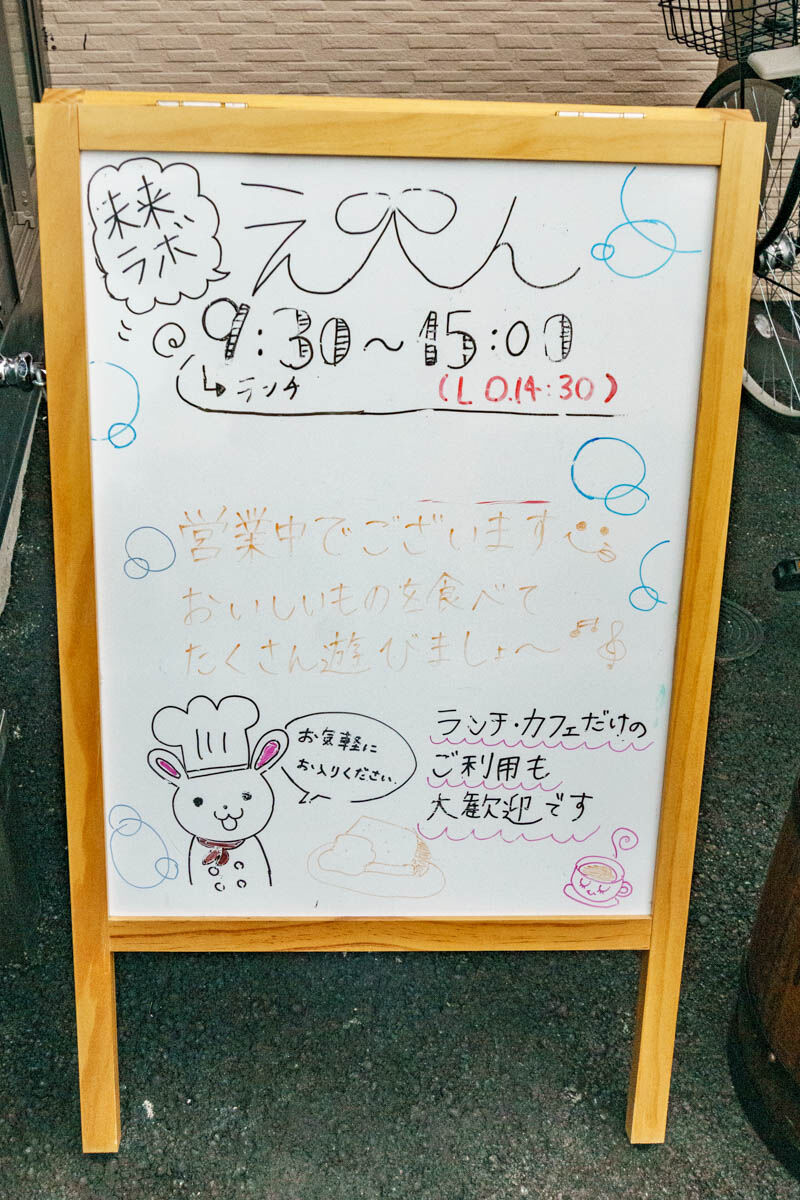 未来
ラボ
えへん
9:30～15:00
↳ランチ
(L.O.14:30)
営業中でございます
おいしいものを食べて
たくさん遊びましょ～
お気軽に
お入りください.
ランチ・カフェだけの
ご利用も
大歓迎です